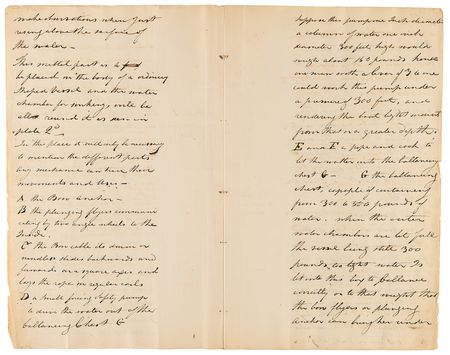 make observations when just
rising above the surface of
the water –
This mettel part is a
be placed in the body of a ordinary
shaped vessel and the water
chamber for sinking, will be
all round it as seen in
plate 2d
In this place it will only be necessary
to mention the different parts
any mechanic can trace their
movements and uses –
A the Bow anchor –
B the plunging flyers communi
cating by two angle wheels to the
inside.
C The Bow cable its drum or
windlass slides backwards and
forwards on a square axis and
lays the rope in regular coils
D a small forcing depth pump
to drive the water out of the
ballancing Chest G
Suppose this pump one Inch diameter
a column of water one inch
diameter 300 feet high would
weigh about pounds hence
one man with a lever of 3 to one
could work this pump under
a pressure of 300 feet, and
rendering the boat light mount
from that or a greater depth.
E and F a pipe and cock to
let the water into the ballancing
chest G – G the ballancing
chest, capable of containing
from 300 to 500 pounds of
water. when the outer
water chambers are let full
the vessel being still 300
pounds too light water Is
let into this box to ballance
correctly or to that weight that
the bow flyers or plunging
anchor can bring her under